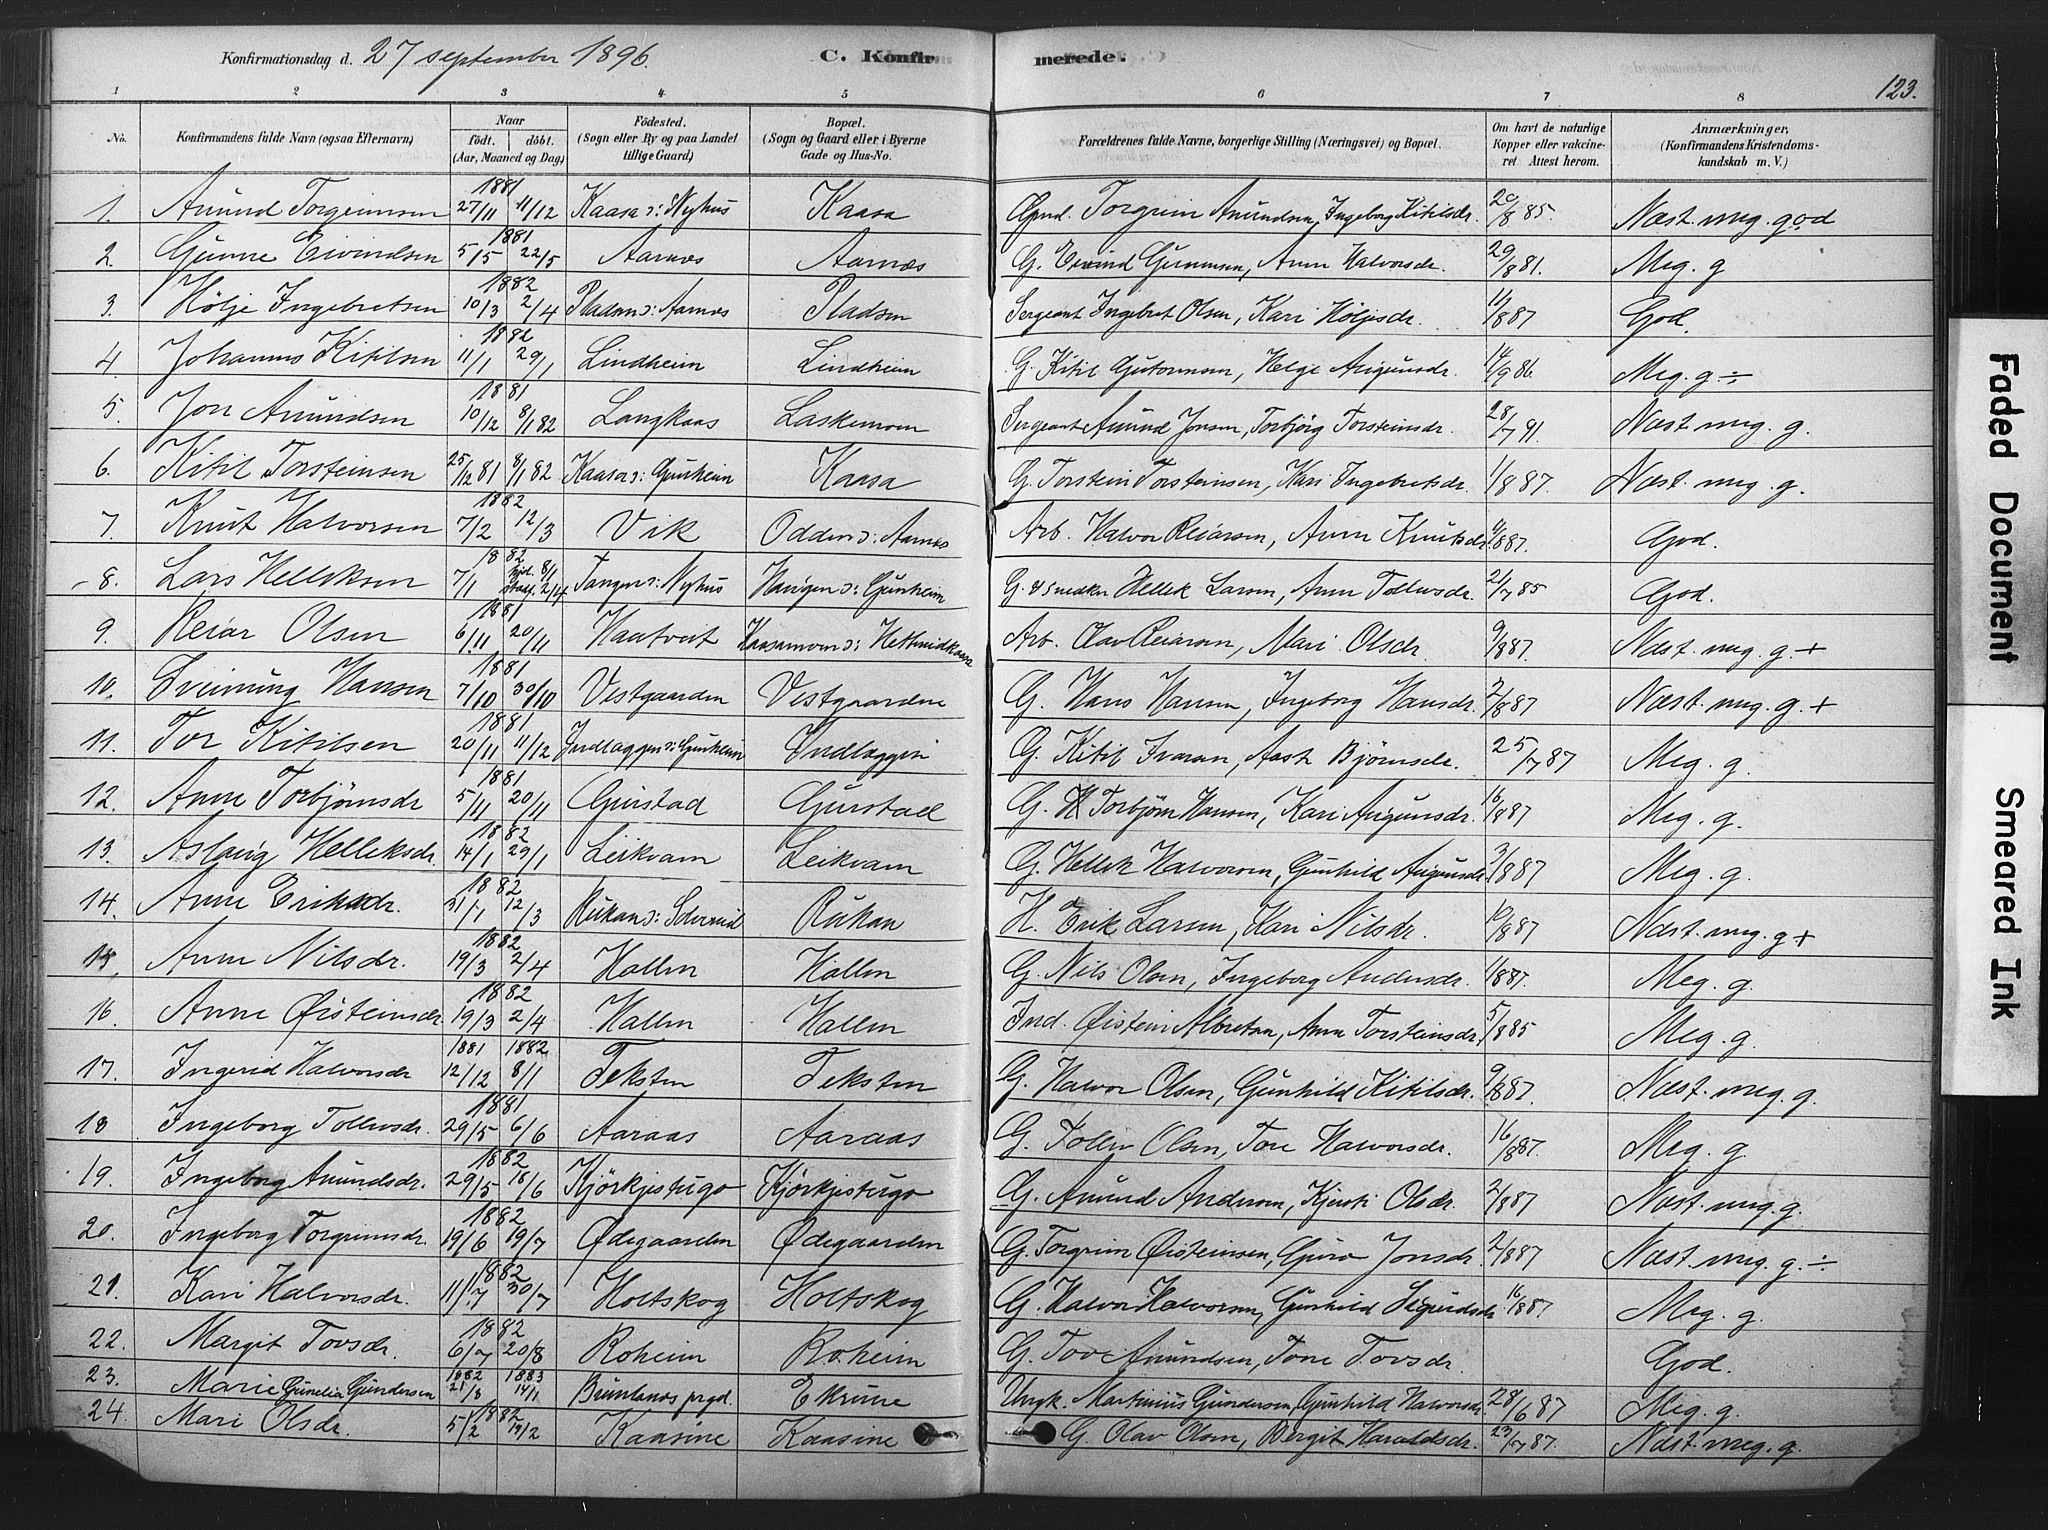 Konfirmationsdag d. 27 september 1896. C. Konfir merede. 123.
1 2 3 4 5 6 7 8
No. Konfirmandens fulde Navn (ogsaa Efternavn) Naar født. døbt. (Aar, Maaned og Dag) Födested. (Sogn eller By og paa Landet tillige Gaard) Bopæl. (Sogn og Gaard eller i Byerne Gade og Hus-No. Forældrenes fulde Navne, borgerlige Stilling (Næringsvei) og Bopæl. Om havt de naturlige Kopper eller vakcineret Attest herom. Anmærkninger. (Konfirmandens Kristendomskundskab m. V.)
1. Amund Torgrimsen 1881 27/11 11/12 Kaasa ɔ: Nyhus Kaasa Torgrim Amundsen, Ingeborg Kitilsdr. 20/8 85. Næst. meg. god
2. Gunne Eivindsen 1881 5/5 22/5 Aarnæs Aarnæs G. Eivind Gunnsen, Anne Halvorsdr. 29/8 81. Meg. g
3. Hölje Ingebretsen 1882 10/3 2/4 Pladsen ɔ: Aarnæs Pladsen Sergeant Ingebret Olsen, Kari Höljesdr. 11/8 87 God.
4 Johannes Kitilsen 1882 11/1 29/1 Lindheim Lindheim G. Kitil Gutormsen, Helge 14/9 86. Meg. g ÷
5 Jon Amundsen 1881 10/12 8/1 82 Langkaas Laskemoen Sergeant Amund Jonsen, Torbjörg Torsteinsdr. 28/7 91. Næst. meg. g.
6. Kitil Torsteinsen 25/12 81 8/1 82 Kaasa ɔ: Gunheim Kaasa G. Torstein Torsteinsen, Kari Ingebretsdr. 1/8 87. Næst. meg. g.
7. Knut Halvorsen 1882 7/2 12/3 Vik Odden ɔ: Aarnæs Arb. Halvor Reiarsen, Anne Knutsdr. 4/8 87. God.
8. Lars Helleksen 1882 7/1 hjd. 8/1 stadf. 2/4 Tangen ɔ: Nyhus Haugen ɔ: Gunheim G. & Snedker Hellek Larsen, Anne Tollevsdr. 21/7 85 God.
9. Reiar Olsen 1881 6/11 20/11 Haatveit Kaasamoen ɔ: G. Arb. Olav Reiarsen, Mari Olsdr. 9/8 87. Næst. meg. g. +
10. Sveinung Hansen 1881 7/10 30/10 Vestgaarden Vestgaarden G. Hans Hansen, Ingeborg Hansdr. 2/8 87 Næst. meg. g. +
11. Tor Kitilsen 1881 20/11 11/12 Indlæggen ɔ: Gunheim Indlæggen G. Kitil Ivarsen, Aaste Björnsdr. 25/7 87 Meg. g.
12. Anne Torbjörnsdr 1881 5/11 20/11 Gurstad Gurstad G. Torbjörn Hansen, Kari 16/8 87 Meg. g.
13. Aslaug Helleksdr. 1882 14/1 29/1 Leikvam Leikvam G. Hellek Halvorsen, Gunhild 3/8 87 Meg. g.
14. Anne Eriksdr. 1882 21/1 12/3 Rukan ɔ: Rukan H. Erik Larsen, Kari Nilsdr. 10/8 87 Næst. meg. g +
15. Anne Nilsdr. 1882 19/3 2/4 Hallen Hallen G. Nils Olsen, Ingeborg Andersdr. 1/8 87. Meg. g.
16. Anne Øisteinsdr 1882 19/3 2/4 Hallen Hallen Ind. Øistein Albretsen, Anne Torsteinsdr. 5/8 85 Meg. g.
17. Ingerid Halvorsdr 1881 12/12 1882 8/1 Teksten Teksten G. Halvor Olsen, Gunhild Kitilsdr. 9/8 87. Næst. meg. g.
18 Ingeborg Tollevsdr. 1881 29/5 6/6 Aaraas Aaraas G. Tollev Olsen, Tore Halvorsdr. 16/8 87. Meg. g.
19. Ingeborg Amundsdr. 1882 29/5 18/6 Kjörkjestugo Kjörkjestugo G. Amund Andersen, Kjersti Olsdr. 2/8 87 Næst. meg. g.
20. Ingeborg Torgrimsdr. 1882 19/6 19/7 Ødegaarden Ødegaarden G. Torgrim Øisteinsen, Guro Jonsdr. 2/8 87 Næst. meg. g. ÷
21. Kari Halvorsdr. 1882 11/7 30/7 Holtskog Holtskog G. Halvor Halvorsen, Gunhild Sigurdsdr 16/8 87 Meg. g.
22. Margit Tovsdr. 1882 6/7 20/8 Roheim Roheim G. Tov Amundsen, Tone Tovsdr. God.
23. Marie Gunelia Gundersen 1882 21/8 1883 14/1 Brunlanæs prgd. Ekrune Ungk. Martinius Gundersen, Gunhild Halvorsdr. 28/6 87 Meg. g.
24. Mari Olsdr. 1882 5/2 19/2 Kaasine Kaasine G. Olav Olsen, Bergit Haraldsdr. 23/7 87. Næst. meg. g.
Faded Document
Smeared Ink